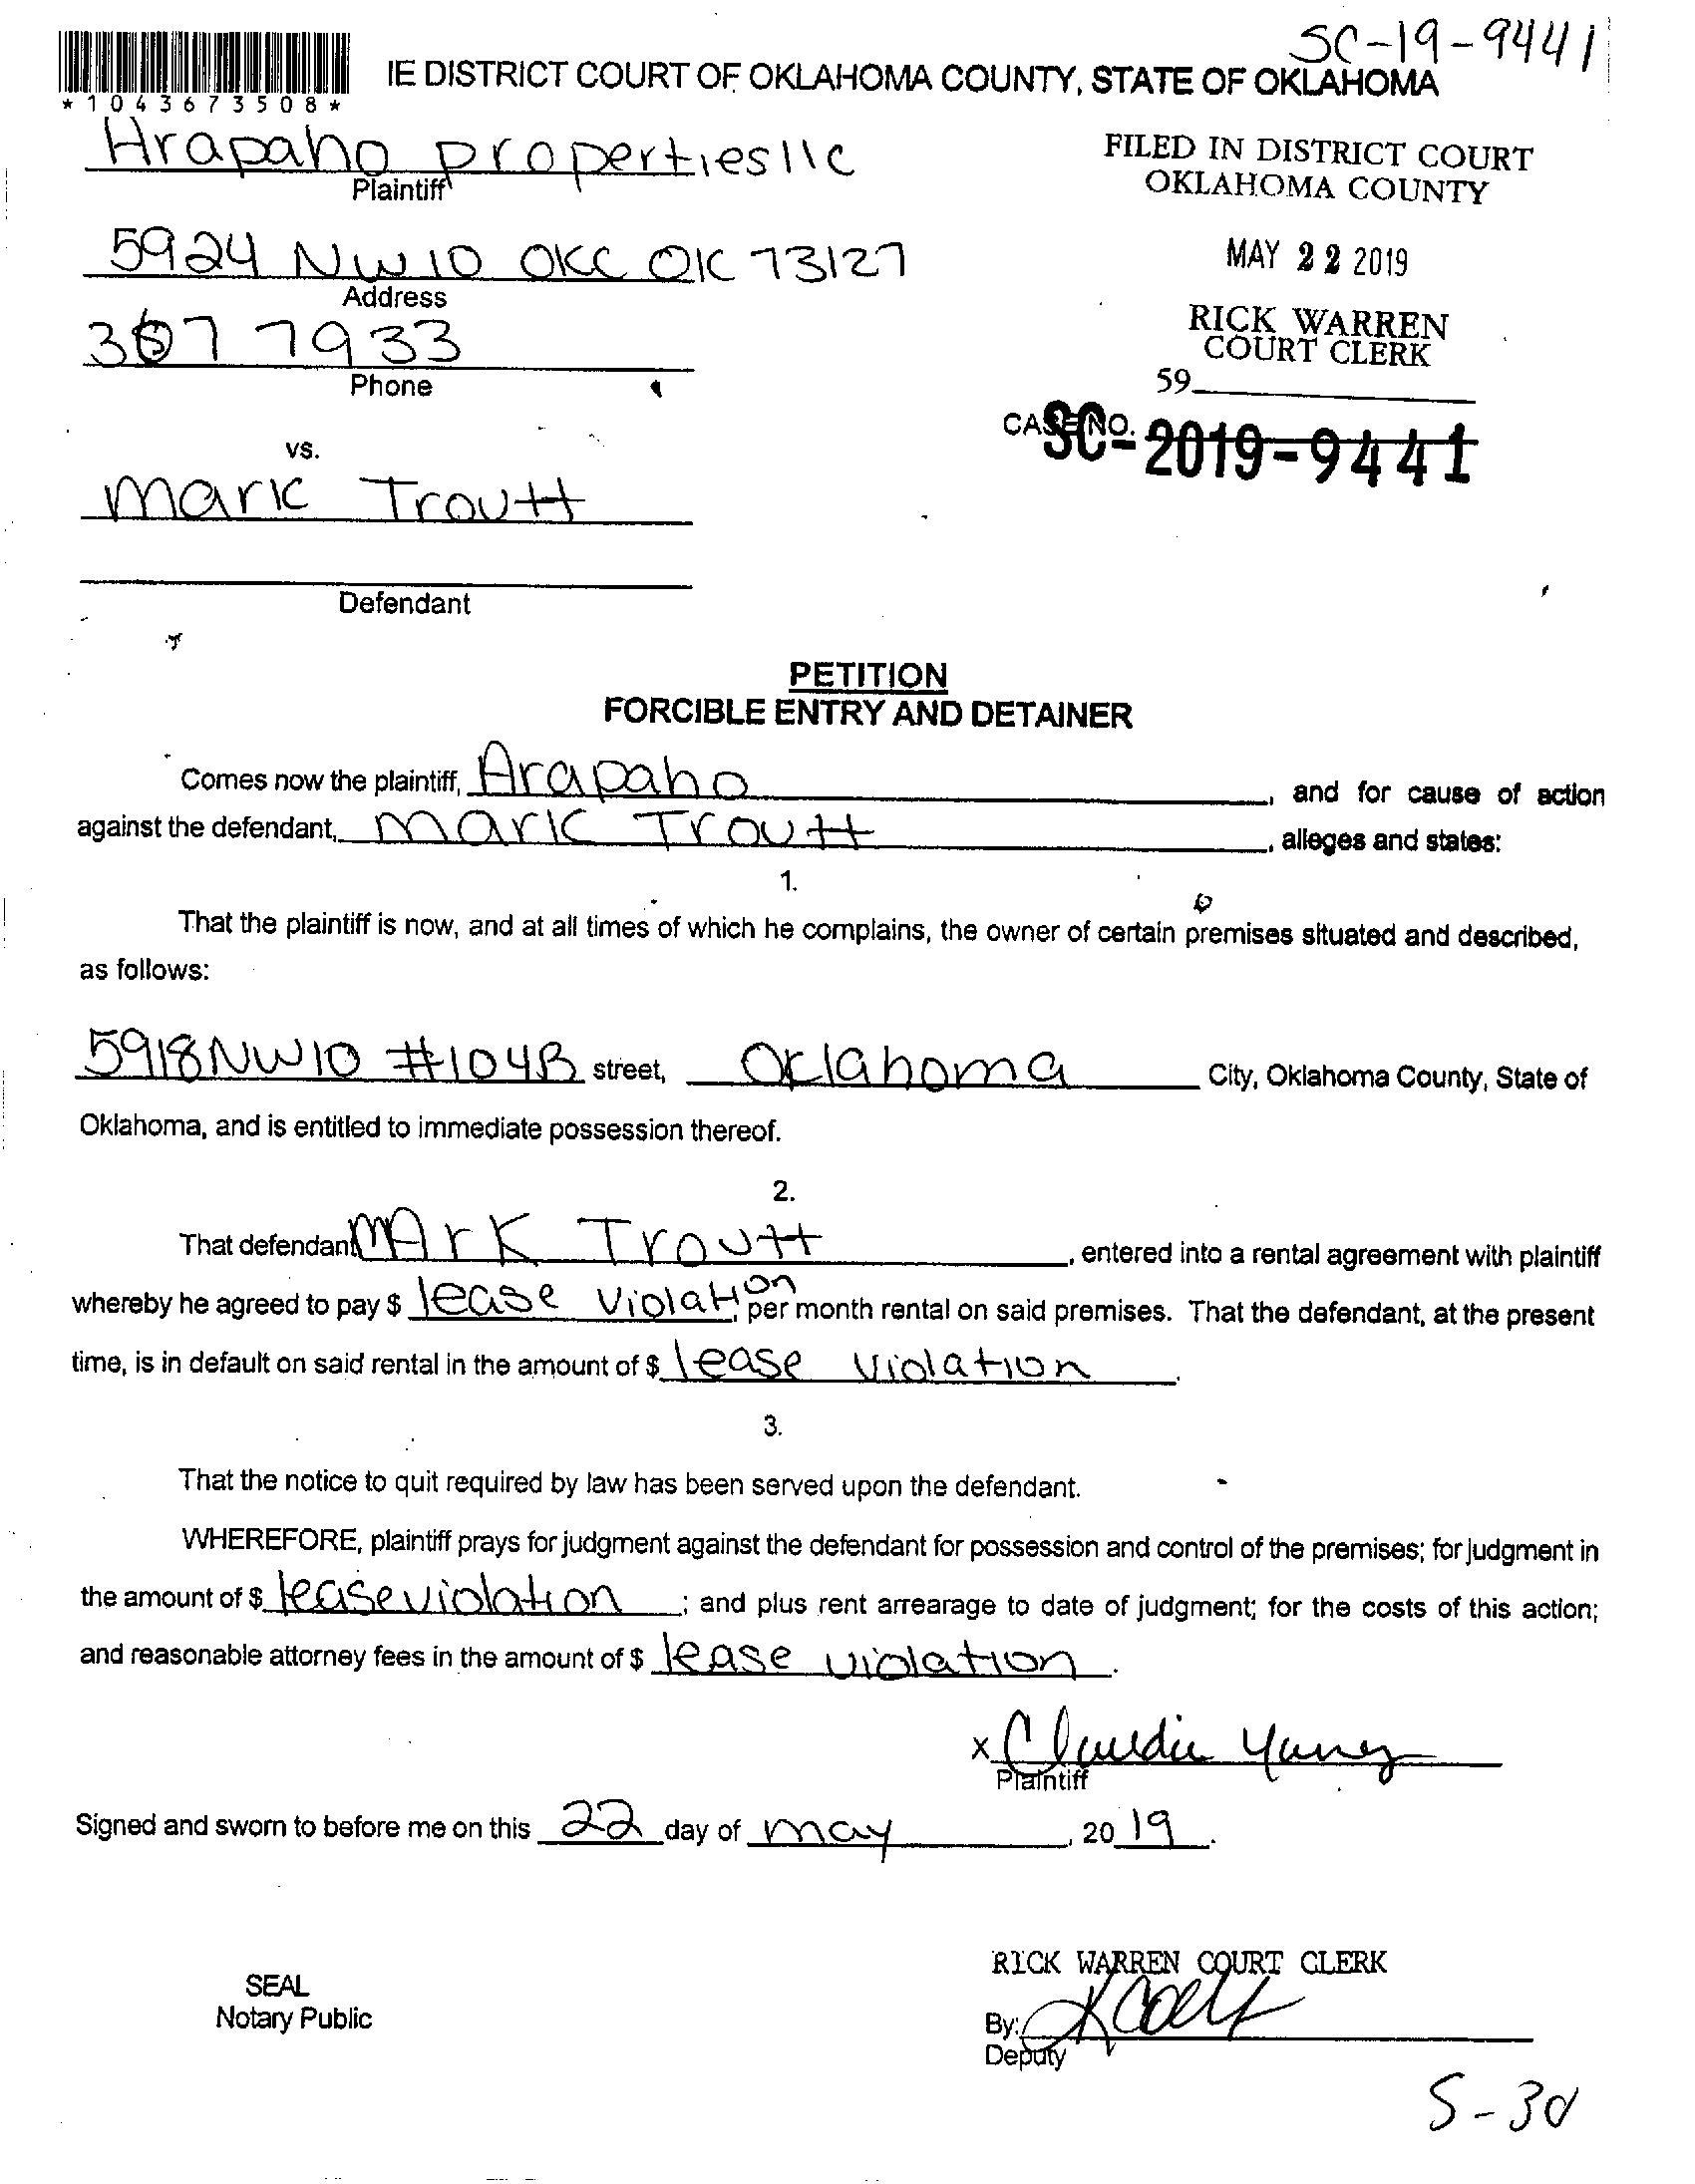 SC-19-9441
IE DISTRICT COURT OF OKLAHOMA COUNTY, STATE OF OKLAHOMA
*1043673508*
Arapaho properties llc
Plaintiff
FILED IN DISTRICT COURT
OKLAHOMA COUNTY
5924 NW 10 OKC OK 73127
Address
MAY 22 2019
RICK WARREN
COURT CLERK
7 7933
Phone
59
CASE NO.
SC-2019-9441
vs.
Mark Troutt
Defendant
PETITION
FORCIBLE ENTRY AND DETAINER
Comes now the plaintiff, Arapaho, and for cause of action
against the defendant, Mark Troutt, alleges and states:
1.
That the plaintiff is now, and at all times of which he complains, the owner of certain premises situated and described,
as follows:
5918 NW 10 #104B street, Oklahoma City, Oklahoma County, State of
Oklahoma, and is entitled to immediate possession thereof.
2.
That defendant MArk Troutt, entered into a rental agreement with plaintiff
whereby he agreed to pay $ lease violation, per month rental on said premises. That the defendant, at the present
time, is in default on said rental in the amount of $ lease violation.
3.
That the notice to quit required by law has been served upon the defendant.
WHEREFORE, plaintiff prays for judgment against the defendant for possession and control of the premises; for judgment in
the amount of $ lease violation; and plus rent arrearage to date of judgment; for the costs of this action;
and reasonable attorney fees in the amount of $ leAse violation.
x Claudia Yanez
Plaintiff
Signed and sworn to before me on this 22 day of may, 20 19.
RICK WARREN COURT CLERK
SEAL
Notary Public
By:
Deputy